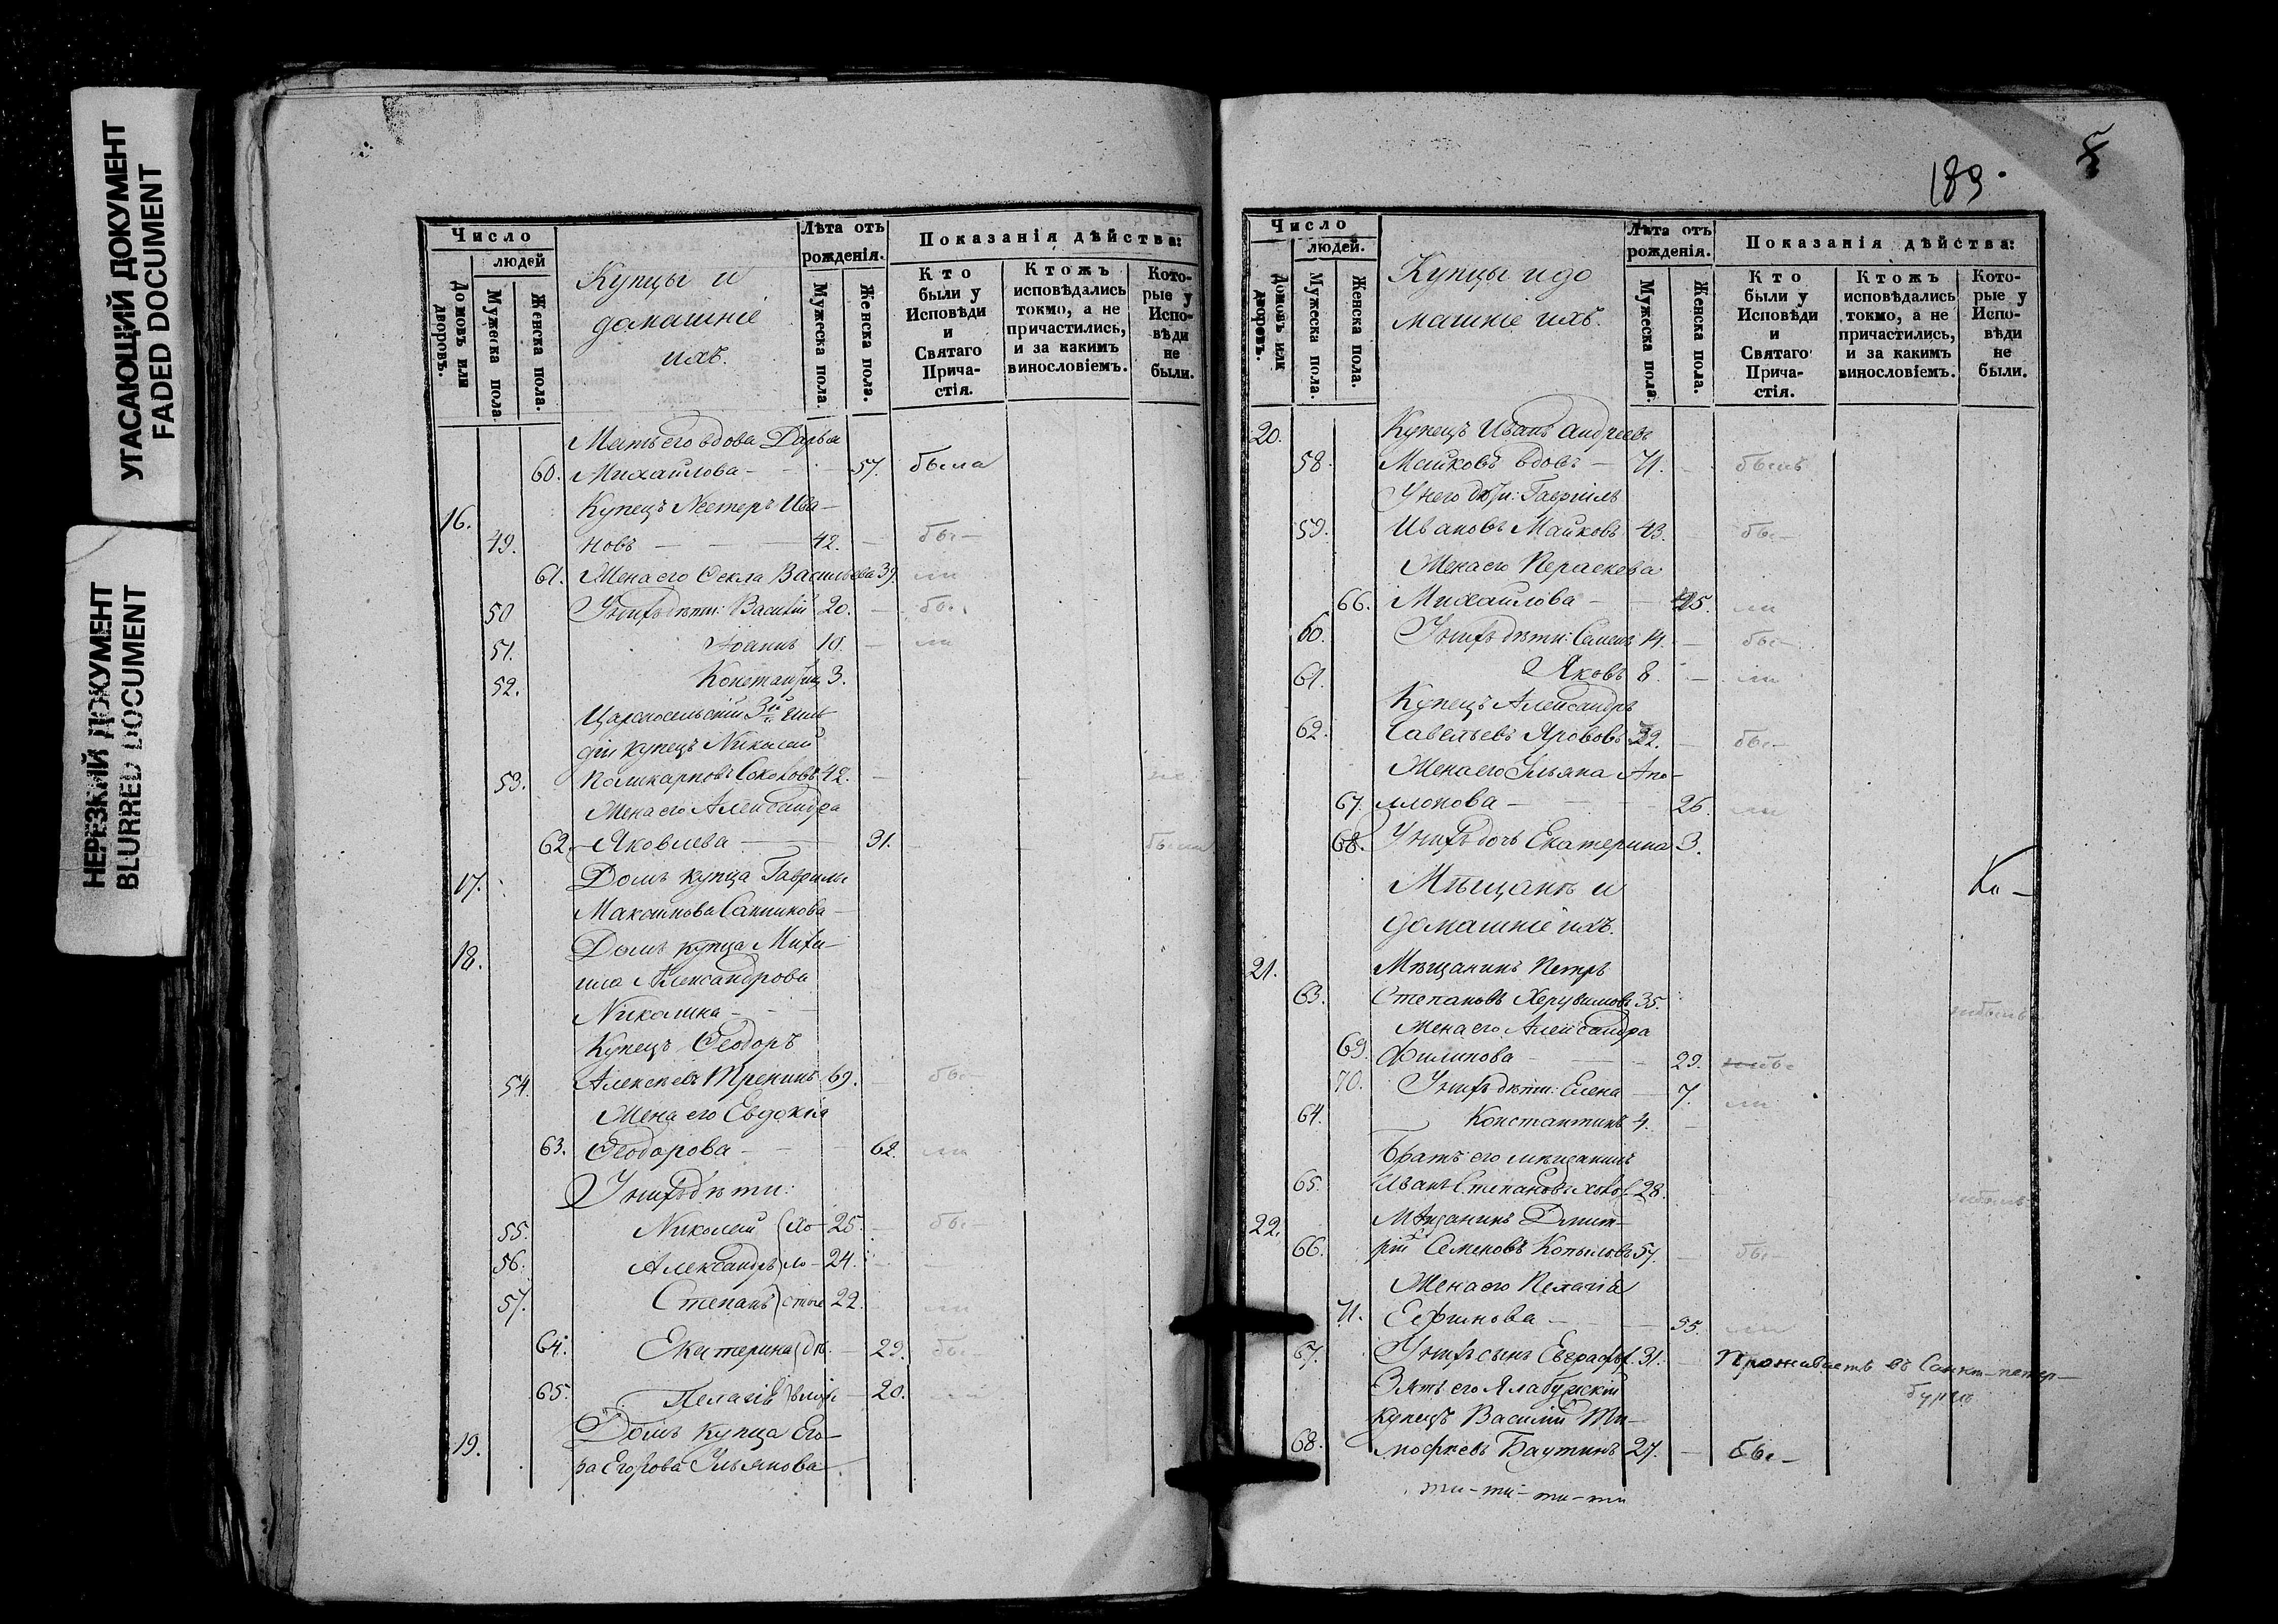 УГАСАЮЩИЙ ДОКУМЕНТ
FADED DOCUMENT
НЕРЕЗКИЙ ДОКУМЕНТ
BLURRED DOCUMENT
Число
людей
Домовъ или дворовъ.
Мужеска пола.
Женска пола.
Купцы и
домашніе
ихъ.
Лѣта отъ
рожденія.
Мужеска пола.
Женска пола.
Показанія дѣйства:
Кто
были у
Исповѣди
и
Святаго
Прича-
стія.
Ктожъ
исповѣдались
токмо, а не
причастились,
и за какимъ
винословіемъ.
Кото-
рые у
Испо-
вѣди
не
были.
Мать его вдова Дарья
60. Михайлова - 57. была
16. Купецъ Нестеръ Ива-
49. новъ - 42. - бы-
61. Жена его Ѳекла Васильева 39. ли
50 У нихъ дѣти: Василій 20. -
51. Іоаннъ 10. - ли
52. 3.
Царскосельскій 3й гиль-
діи купецъ Николай
53. Соколовъ 42. - не
Жена его Александра
62. Яковлева - 31. - были
17. Домъ купца Гаврилы
Максимова Санникова -
18. Домъ купца Миха-
ила Александрова
Никалина -
Купецъ Ѳеодоръ
54. Алексѣевъ Тренинъ 69. бы
Жена его Евдокія
63. Ѳеодорова - 62. ли
У нихъ дѣти:
55. Николай (хо- 25. - бы-
56. Александръ ло- 24.
57. Степанъ стые 22. ли
64. Екатерина дѣ - 29. бы
65. Пелагія - 20.
19. Домъ купца Его-
ра Егорова Ульянова
189.
8
Число
людей.
Домовъ или дворовъ.
Мужеска пола.
Женска пола.
Купцы и до
машніе ихъ.
Лѣта отъ
рожденія.
Мужеска пола.
Женска пола.
Показанія дѣйства:
Кто
были у
Исповѣди
и
Святаго
Прича-
стія.
Ктожъ
исповѣдались
токмо, а не
причастились,
и за какимъ
винословіемъ.
Кото-
рые у
Испо-
вѣди
не
были.
20. Купецъ Иванъ Андреевъ
58. Майковъ вдовъ - 71. - былъ
У него дѣти: Гавріилъ
59. Ивановъ Майковъ 43. - бы-
Жена его Параскева
66. Михайлова - 45. ли
60. У нихъ дѣти: Семенъ 14. - бы-
61. Яковъ 8. - ли
Купецъ Александръ
62. Савельевъ Ярововъ 32. - бы-
Жена его Ульяна Апо-
67. ллонова - 26. ли
68. У нихъ дочь Екатерина 3.
Мѣщане и
домашніе ихъ.
Ка-
21. Мѣщанинъ Петръ
63. Степановъ Херувимовъ 35. небылъ
Жена его Александра
69. Филипова - 29.
70. У нихъ дѣти: Елена - 7. ли
64. Константинъ 4. -
Братъ его мѣщанинъ
65. Иванъ Степановъ 28. небылъ
22. Мѣщанинъ Дмит-
66. рій Семеновъ Копыловъ 57. - бы-
Жена его Пелагія
71. Ефимова - 55. ли
67. У нихъ сынъ Евграфъ 31. - Проживаетъ въ Санкт-петер-
бургѣ
Зять его Ялабужскій
купецъ Василій Ти-
68. мофѣевъ Баутинъ 27. - бы-
ти-ти-ти-ти